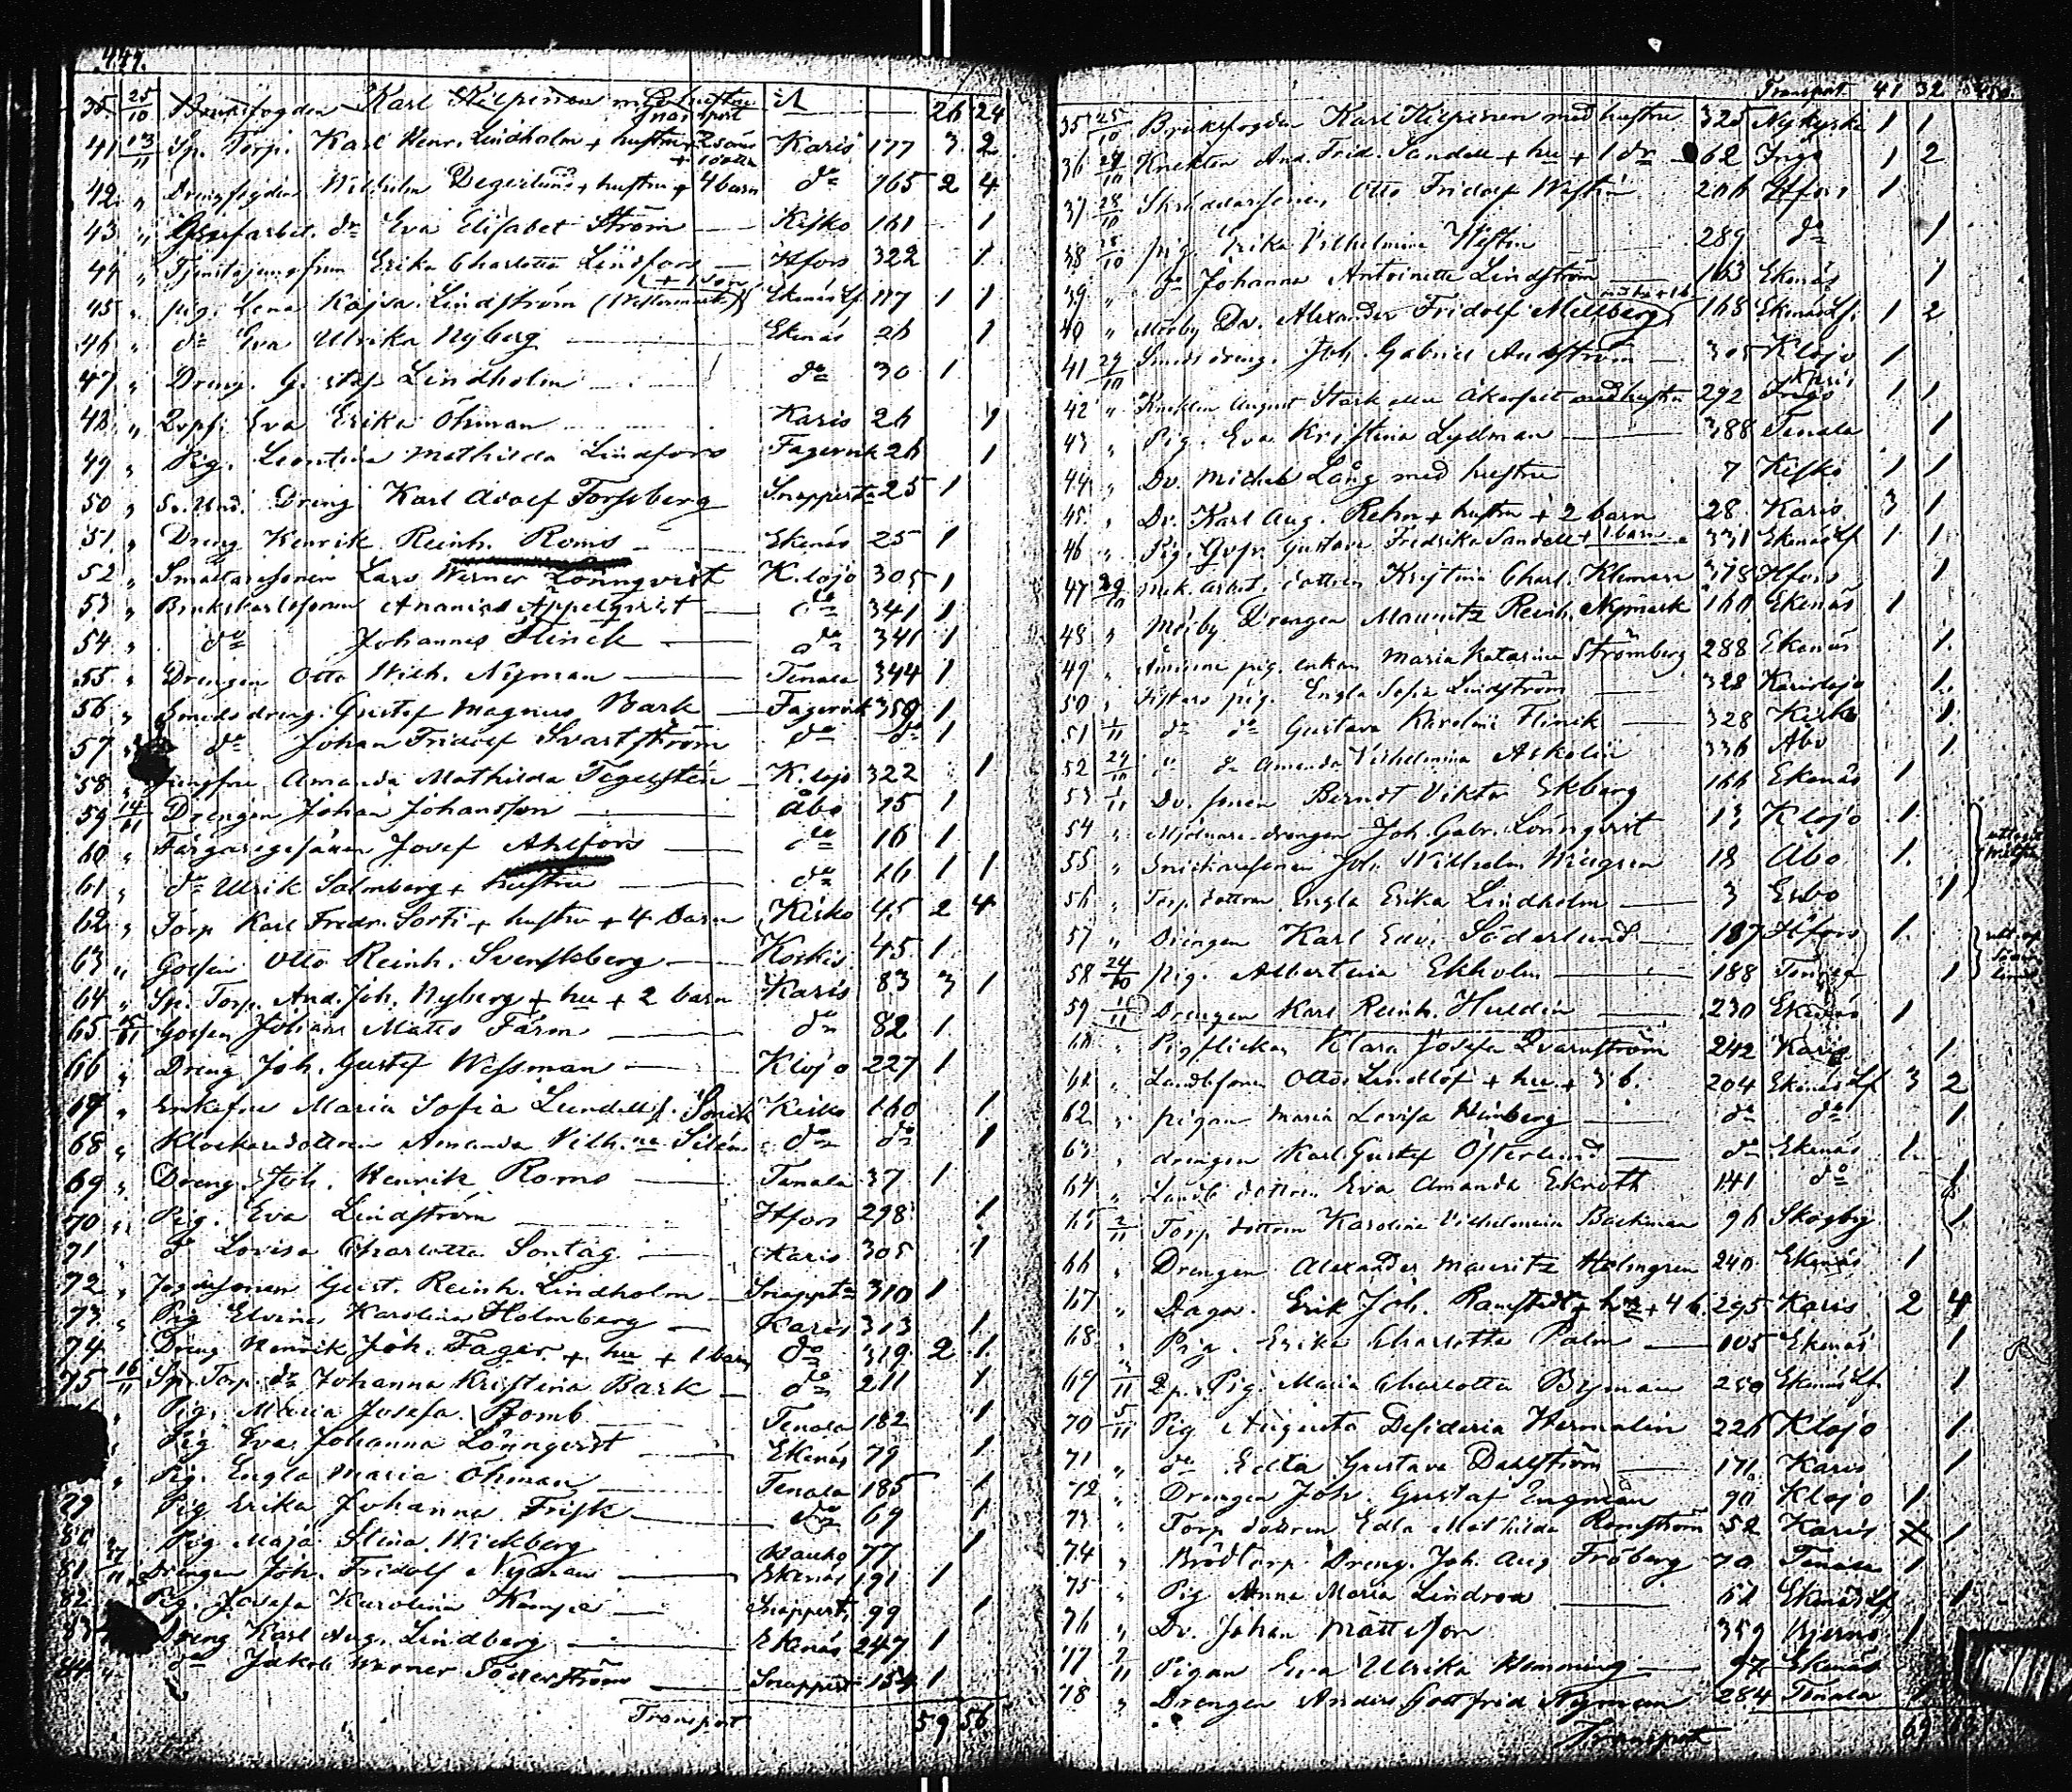 447.
35. 25/10 Bruksfogden Karl Kilpinen med hustru Transport 26 24
41 13/11 Sp. Torp. Karl Henr. Lindholm + hustru + 2 söner + 1 dotter Karis 177 3 2
42 " Drengfogden Wilhelm Degerlund + hustru + 4 barn do 165 2 4
43 " arbet. dr Eva Elisabet Ström Kisko 161 1
44 " Tjenstejungfrun Erika Charlotta Lindfors Hfors 322 1
45 " pig. Lena Kajsa Lindström + 1 son Ekenäs Lf 177 1 1
46 " do Eva Ulrika Nyberg Ekenäs 26 1
47 " Dreng. Gustaf Lindholm do 30 1
48 " Eva Erika Öhman Karis 26 1
49 " Pig. Leontina Mathilda Lindfors Fagervik 26 1
50 " Dreng Karl Adolf Forssberg Snappertu 25 1
51 " Dreng Henrik Reinh. Roms Ekenäs 25 1
52 " Lars Werner Lönnqvist K.lojo 305 1
53 " Brukskarlssonen Ananias Appelqvist do 341 1
54 " do Johannes Flinck do 341 1
55 " Drengen Otto Wilh. Nyman Tenala 344 1
56 " Smedsdreng. Gustaf Magnus Bark Fagervik 359 1
57 " do Johan Fridolf Svartström do do 1
58 " Jungfru Amanda Mathilda Tegelsten K.lojo 322 1
59 14/11 Drengen Johan Johansson Åbo 15 1
60 " Färgaregesällen Josef Ahlfors do 16 1
61 " do Ulrik Salmberg + hustru do 16 1 1
62 " Torp Karl Fredr. Sorti + hustru + 4 barn Kisko 45 2 4
63 " Gossen Otto Reinh. Svenskberg Koskis 45 1
64 " Sp. Torp. And. Joh. Nyberg + hu + 2 barn Karis 83 3 1
65 15/11 Gossen Johans Matts Färm do 82 1
66 " Dreng Joh. Gustf Wessman Klojo 227 1
67 " Enkefru Maria Sofia Lundell f. Kisko 160 1
68 " Klockaredottren Amanda Vilh.na Silén do do 1
69 " Dreng. Joh. Henrik Roms Tenala 37 1
70 " Pig. Eva Lindström Hfors 298 1
71 " do Lovisa Charlotta Sontag Karis 305 1
72 " Gust. Reinh. Lindholm Snapptu 310 1
73 " Pig Elvina Karolina Holmberg Karis 313 1
74 " Dreng Henrik Joh. Fager + hu + 1 barn do 319 2 1
75 16/11 Sp. Torp. dr Johanna Kristina Bark do 211 1
" Pig. Maria Josefa Bomb Tenala 182 1
" Pig Eva Johanna Lönnqvist Ekenäs 79 1
" Pig. Engla Maria Öhman Tenala 185 1
79 Pig Erika Johanna Frisk do 69 1
80 " Pig Maja Stina Wickberg 77 1
81 17/11 Drengen Joh. Fridolf Nyman Ekenäs 191 1
82 Pig. Josefa Karolina Snappertu 99 1
83 Dreng Karl Aug. Lindberg Ekenäs 247 1
84 " do Jakob Werner Söderström Snappert 154 1
Transport 59 56
Transport 41 32
35 25/10 Bruksfogden Karl Kilpinen med hustru 325 Nykyrka 1 1
36 28/10 Knekten And. Frid. Sandell + hu + 1 dr 62 Ingo 1 2
37 28/10 Skräddarsonen Otto Fridolf Westin 206 Hfors 1
38 28/10 pig. Erika Vilhelmina Westin 289 do 1
39 " do Johanna Antoinetta Lindström 163 Ekenäs 1
40 " Dr. Alexander Fridolf Millberg 168 Ekenäs Lf. 1 2
41 29/10 Smedsdreng. Joh. Gabriel Andström 305 Klojo 1
42 " Knekten August Stark med hustru 292 Karis Ingo 1 1
43 " Pig. Eva Kristina Lydman 388 Tenala 1
44 " Dr. Michel Lång med hustru 7 Kisko 1 1
45 " Dr. Karl Aug. Rehn + hustru + 2 barn 28 Karis 3 1
46 " Pig. Gustava Fredrika Sandell + 1 barn 331 Ekenäs Lf 1 1
47 29/10 Mek. arbet. dottren Kristina Charl. 378 Hfors 1
48 " Drengen Mauritz Reinh. Nymark 160 Ekenäs 1
49 " pig. enkan Maria Katarina Strömberg 288 Ekenäs 1
50 " pig. Engla Sofia Lindström 328 Karislojo 1
51 1/11 do do Gustava Karolina Flinck 328 Kisko 1
52 29/10 do do Amanda Vilhelmina Askolin 336 Åbo 1
53 1/11 Dr. sonen Berndt Viktor Ekberg 166 Ekenäs 1
54 " Mjölnare drengen Joh. Gabr. Lönnqvist 13 Klojo 1
55 " Snickaresonen Joh. Wilhelm 18 Åbo 1
56 " Torp. dottren Engla Erika Lindholm 3 Esbo 1
57 " Drengen Karl Edv. Söderlund 187 Hfors 1
58 24/10 Pig. Albertina Ekholm 188 Tenala 1
59 1/11 Drengen Karl Reinh. Huldin 230 Ekenäs 1
60 " Pigflickan Klara Josefa Qvarnström 242 Karis 1
61 " Landbsonen Otto Lindlöf + hu + 3 b. 204 Ekenäs Lf 3 2
62 " pigan Maria Lovisa Heinberg do do 1
63 " drengen Karl Gustaf Österlund do Ekenäs 1
64 " Landb dottren Eva Amanda Ekroth 141 do 1
65 2/11 Torp dottren Karolina Vilhelmina Backman 96 Skogby 1
66 " Drengen Alexander Mauritz Holmgren 240 Ekenäs 1
67 " Dagk. Erik Joh. Ramstedt + hu + 4 b. 295 Karis 2 4
68 " Pig. Erika Charlotta Palm 105 Ekenäs 1
69 3/11 Pig. Maria Charlotta Byman 250 Ekenäs Lf. 1
70 5/11 Pig Augusta Desideria Hermalin 226 Klojo 1
71 " do Edla Gustava Dahlström 171 Karis 1
72 " Drengen Joh. Gustaf Engman 90 Klojo 1
73 " Torp dottren Edla Mathilda Ramström 52 Karis 1
74 " Brödtorp Dreng. Joh. Aug. Fröberg 70 Tenala 1
75 " Pig Anna Maria Lindroos 61 Ekenäs Lf 1
76 " Dr. Johan Mattsson 359 Bjerno 1
77 7/11 Pigan Eva Ulrika Hemming 97 Ekenäs
78 " Drengen Anders Gottfrid Nyman 284 Tenala 1
Transport 69